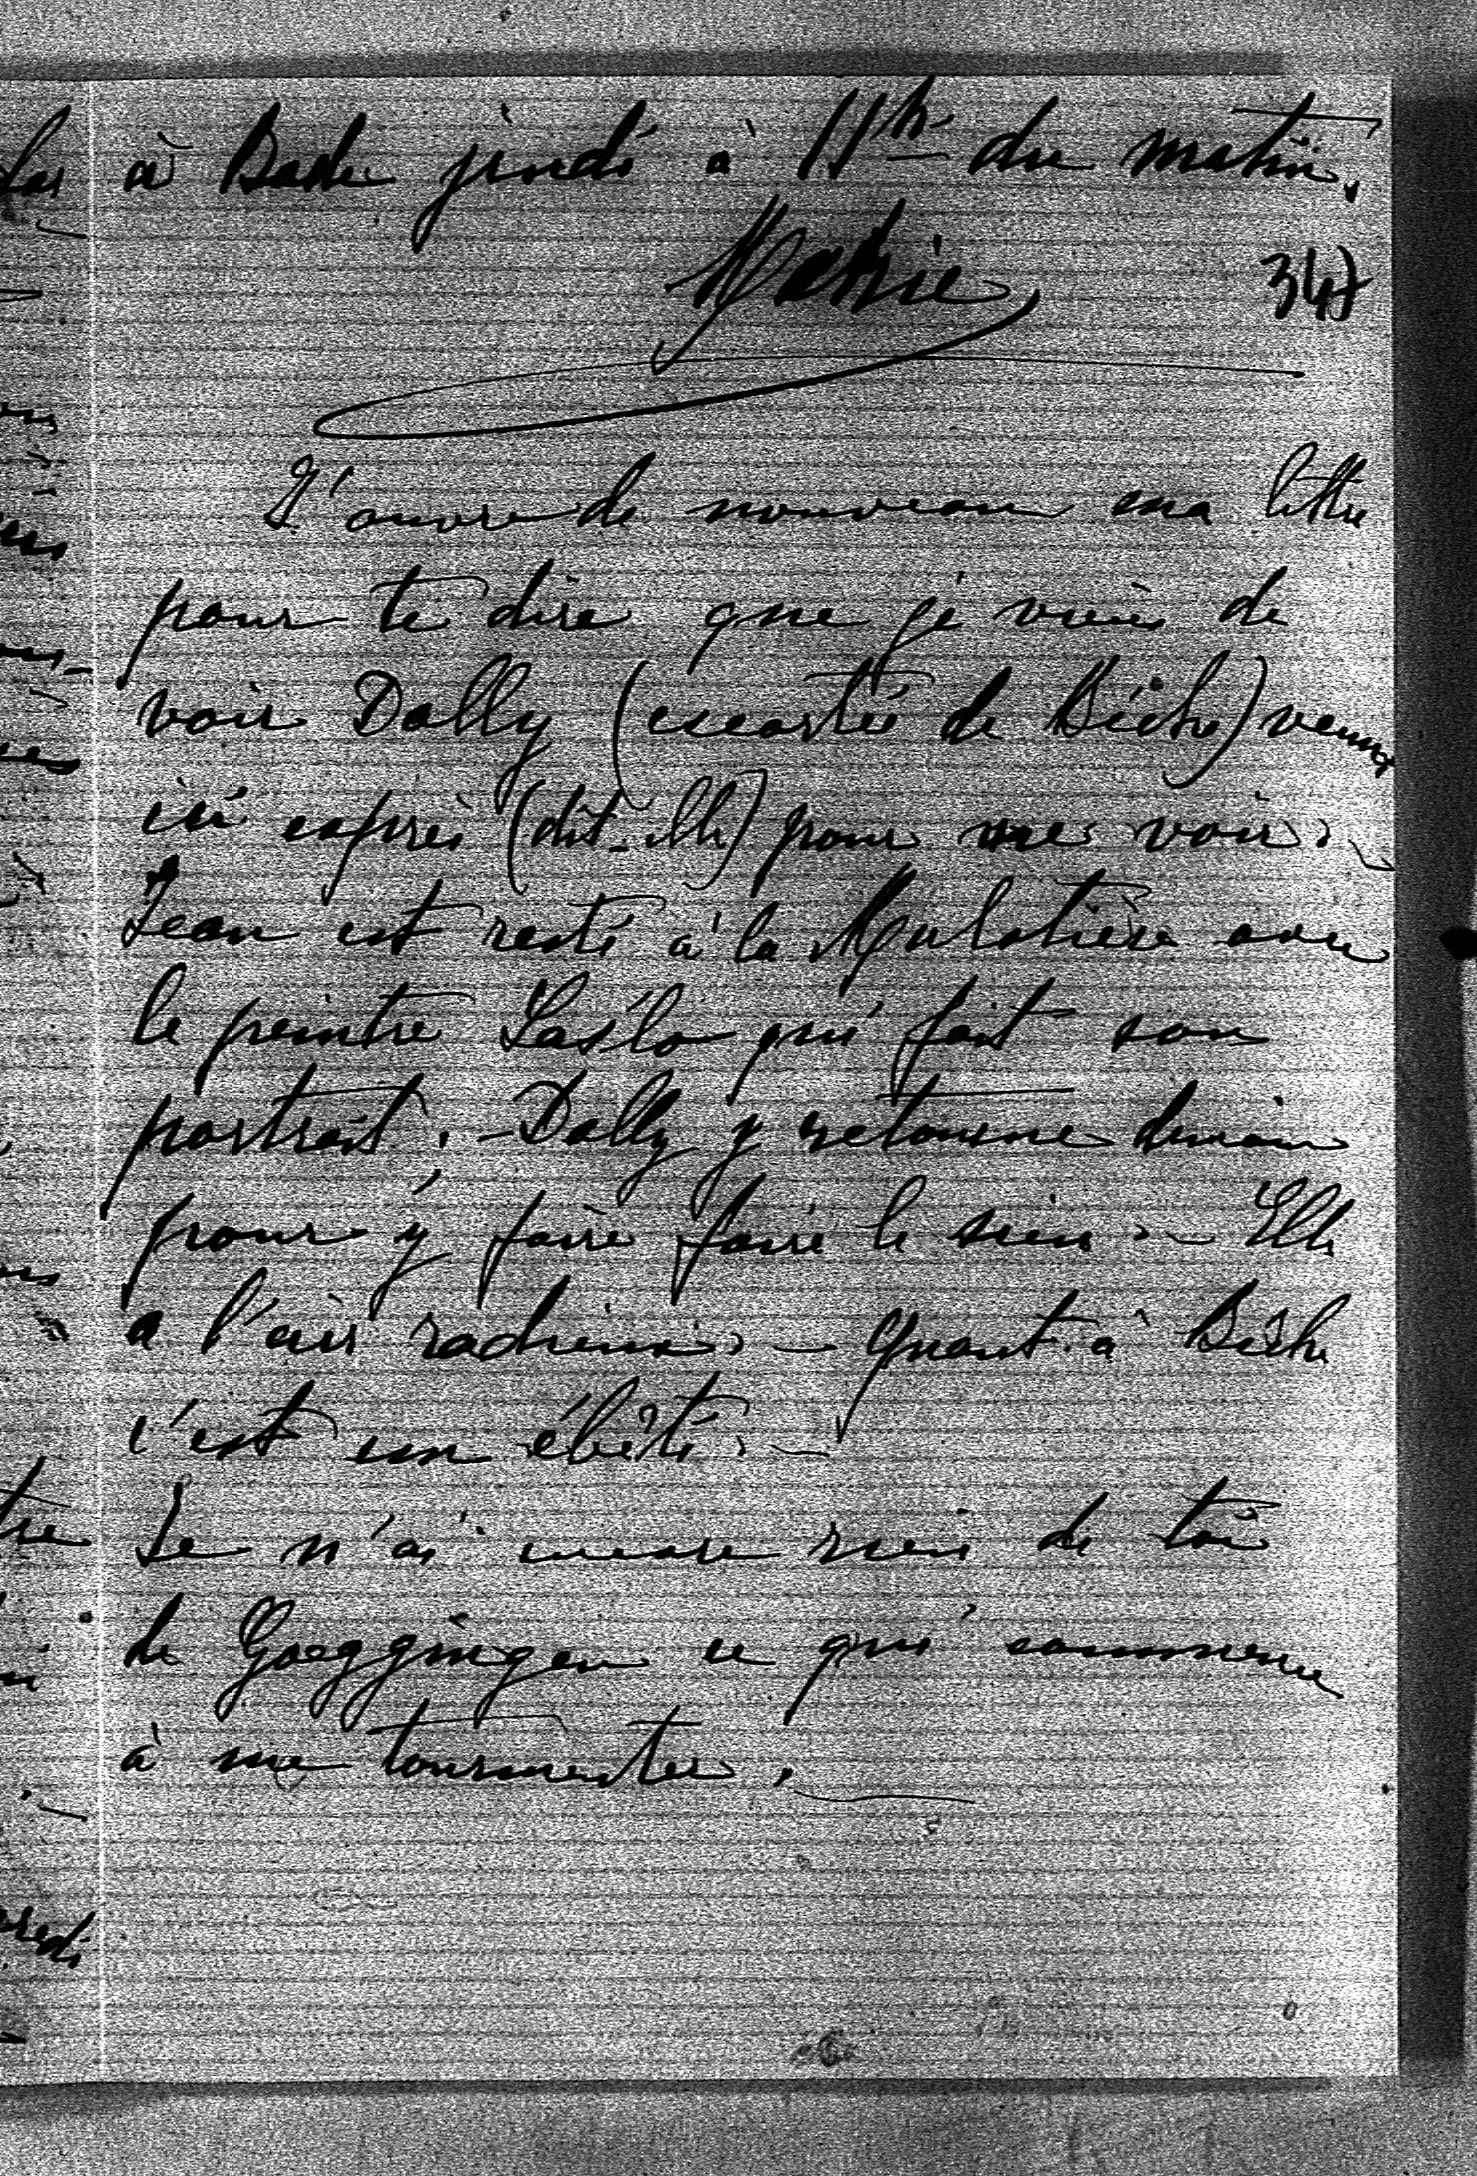 à Bade jeudi à 11h du matin.
Marie
347
J'ouvre de nouveau ma lettre
pour te dire que je viens de
voir Dolly (escortée de Béche) venue
ici exprès (dit-elle) pour me voir. —
Jean est resté à la Mulotière avec
le peintre Laslo qui fait son
portrait. — Dolly y retourne demain
pour y faire faire le sien. — Elle
a l'air radieux. — Quant à Béche
c'est un ébêté. —
Je n'ai encore rien de toi
de Goeggingen ce qui commence
à me tourmenter. —